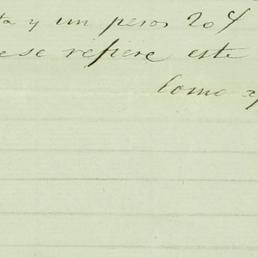 ta y un pesos 20
se refiere este
Como